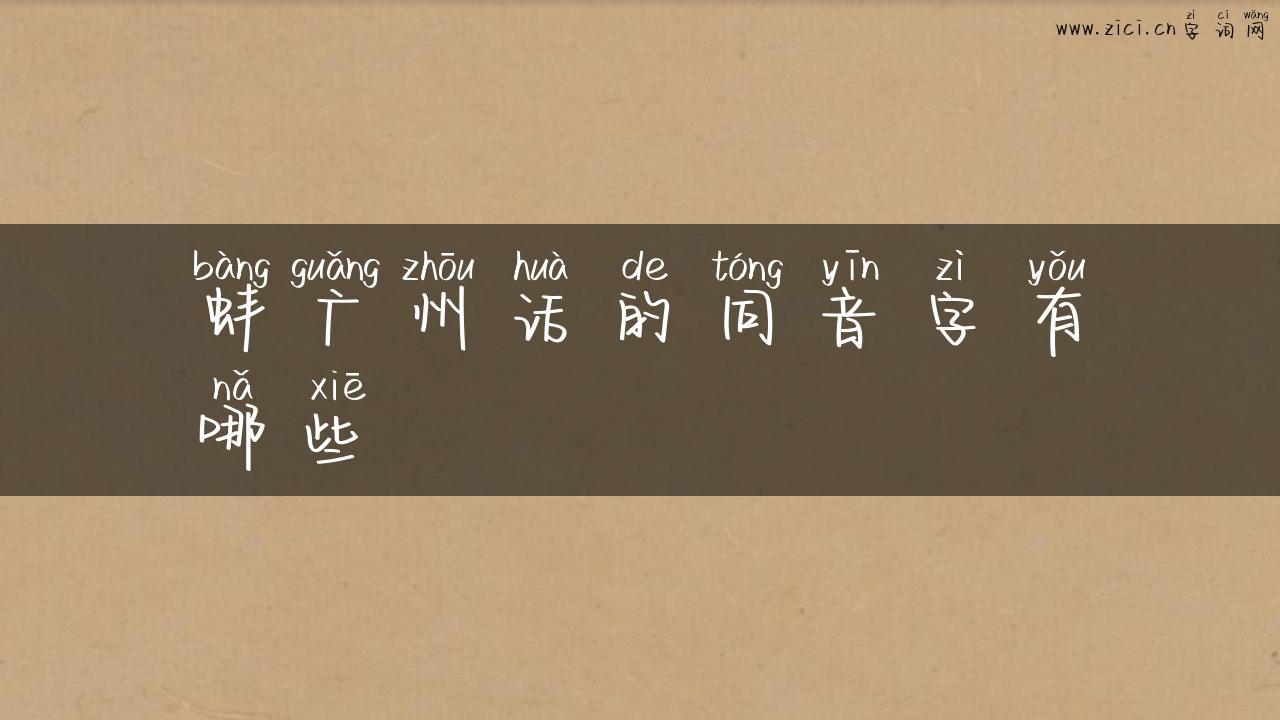 zì cí wǎng
www.zici.cn 字词网
bàng guǎng zhōu huà de tóng yīn zì yǒu
蚌广州话的同音字有
nǎ xiē
哪些